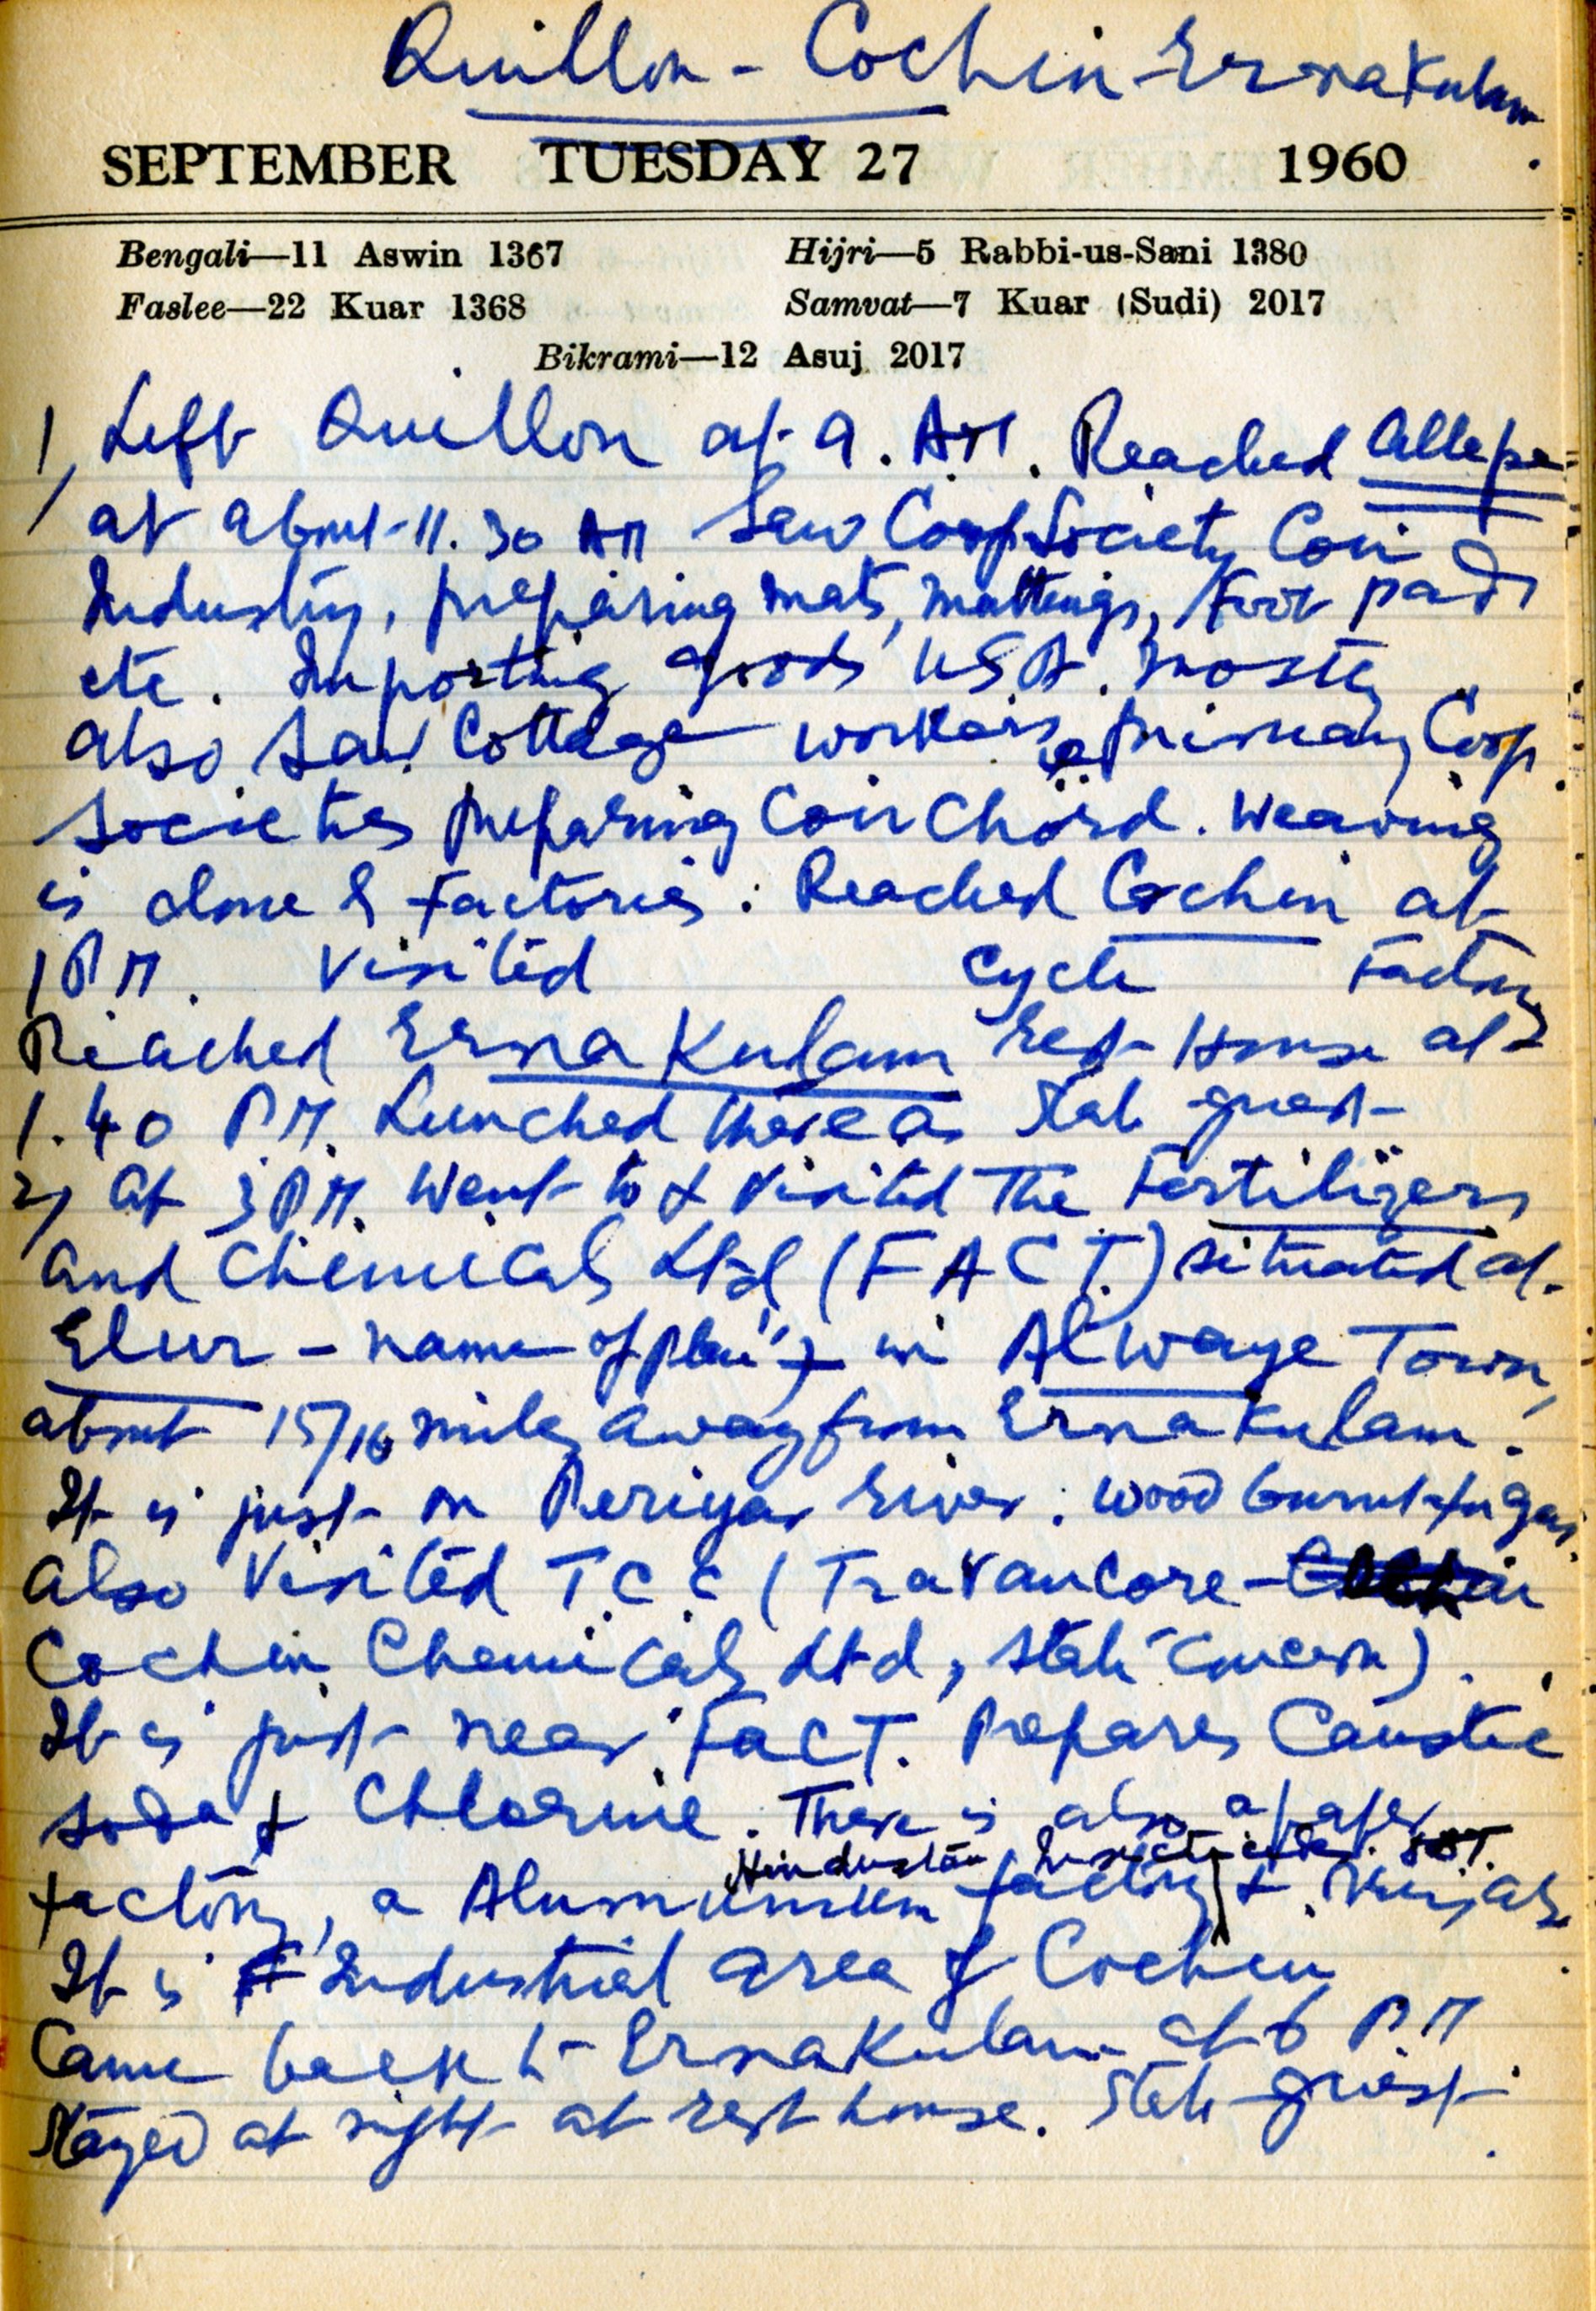 Quillon - Cochin - Ernakulam.
SEPTEMBER TUESDAY 27 1960
Bengali—11 Aswin 1367 Hijri—5 Rabbi-us-Sani 1380
Faslee—22 Kuar 1368 Samvat—7 Kuar (Sudi) 2017
Bikrami—12 Asuj 2017
1, Left Quillon at 9. AM. Reached Allepe
at about 11.30 AM Saw Coop Society Coir
Industry, preparing mats, mattings, Foot pads
etc. Importing goods USA. mostly
also saw Cottage workers & primary Coop
Societies preparing Coir Chord. Weaving
is done & Factories. Reached Cochin at
1 PM. Visited Cycle Factory
Reached Ernakulam Rest House at
1.40 PM. Lunched there as State guest
2, At 3 PM. Went to & Visited The Fertilizers
and Chemicals Ltd (FACT.) situated at
Elur - name of place in Alwaye Town,
about 15/16 miles away from Ernakulam.
It is just on Periyar River. Wood burnt for gas.
Also Visited T.C.C (Travancore-
Cochin Chemicals Ltd, State concern).
It is just near FACT. Prepares Caustic
soda & Chlorine. There is also a paper
Hindustan Insecticide
factory, a Alumunium factory &
It is Industrial area of Cochin
Came back to Ernakulam at 6 PM.
Stayed at night at rest house. State guest.